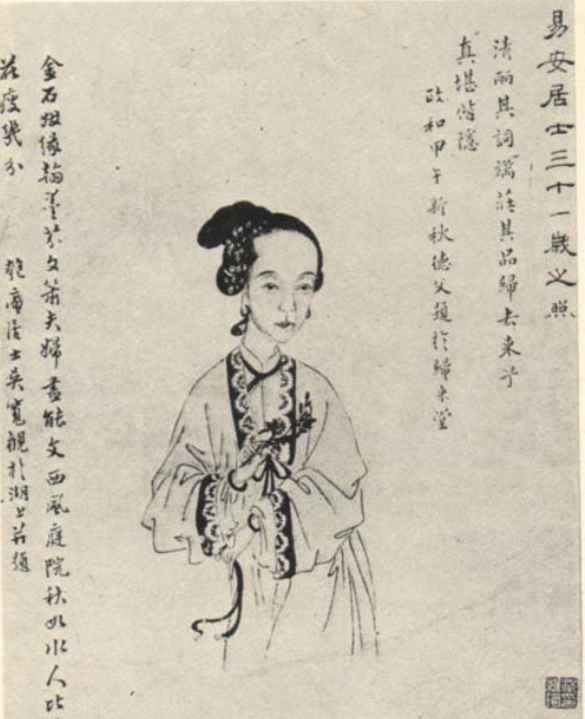 易安居士三十一歲之照
清丽其詞端莊其品歸去來兮
真堪偕隱
政和甲午新秋德父題於歸來堂
金石姻緣翰墨芬文簫夫婦盡能文西風庭院秋如水人比
黃花瘦幾分
匏庵居士吳寬觀於湖上并題